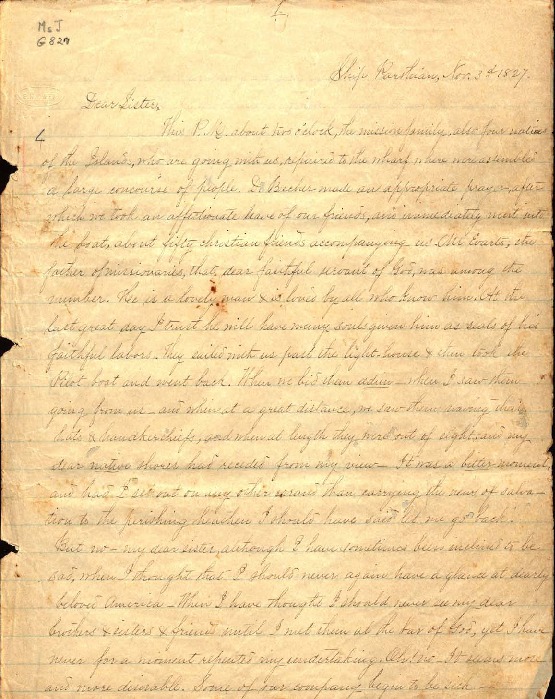 MsJ
G827
1
Ship Parthian, Nov. 3d 1827.
Dear Sister,
This P.M. about two o'clock, the mission family, also four natives
of the Islands, who are going with us, repaired to the wharf where were assembled
a large concourse of people. Dr Beecher made an appropriate prayer, after
which we took an affectionate leave of our friends, and immediately went into
the boat, about fifty christian friends accompanying us. Mr Evarts, the
father of missionaries, that dear faithful servant of God, was among the
number. He is a lovely man & is loved by all who know him. At the
last great day I trust he will have many souls given him as seals of his
faithful labors. They sailed with us past the light-house & then took the
Pilot boat and went back. When we bid them adieu—when I saw them
going from us—and when at a great distance, we saw them waving their
hats & handkerchiefs, and when at length they were out of sight, and my
dear native shores had receded from my view—It was a bitter moment,
and had I set out on any other errand than carrying the news of salva-
tion to the perishing heathen I should have said let me go back.
But no—my dear sister, although I have sometimes been inclined to be
sad, when I thought that I should never again have a glance at dearly
beloved America—When I have thought I should never see my dear
brothers & sisters & friends until I met them at the bar of God, yet I have
never for a moment repented my undertaking. Oh! no. It seems more
and more desirable. Some of our company begin to be sick